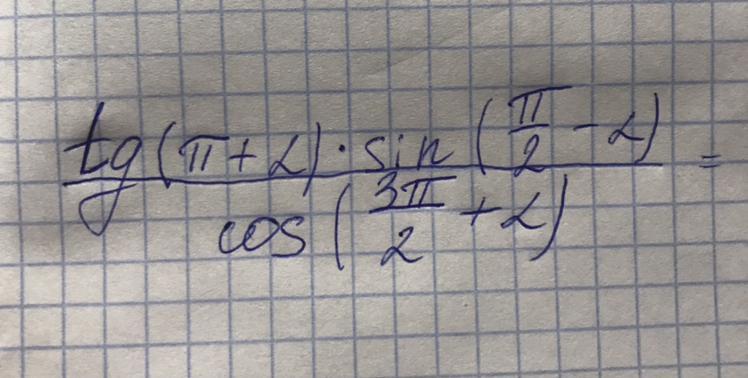 tg(π + α) · sin(π/2 - α)
cos(3π/2 + α) =